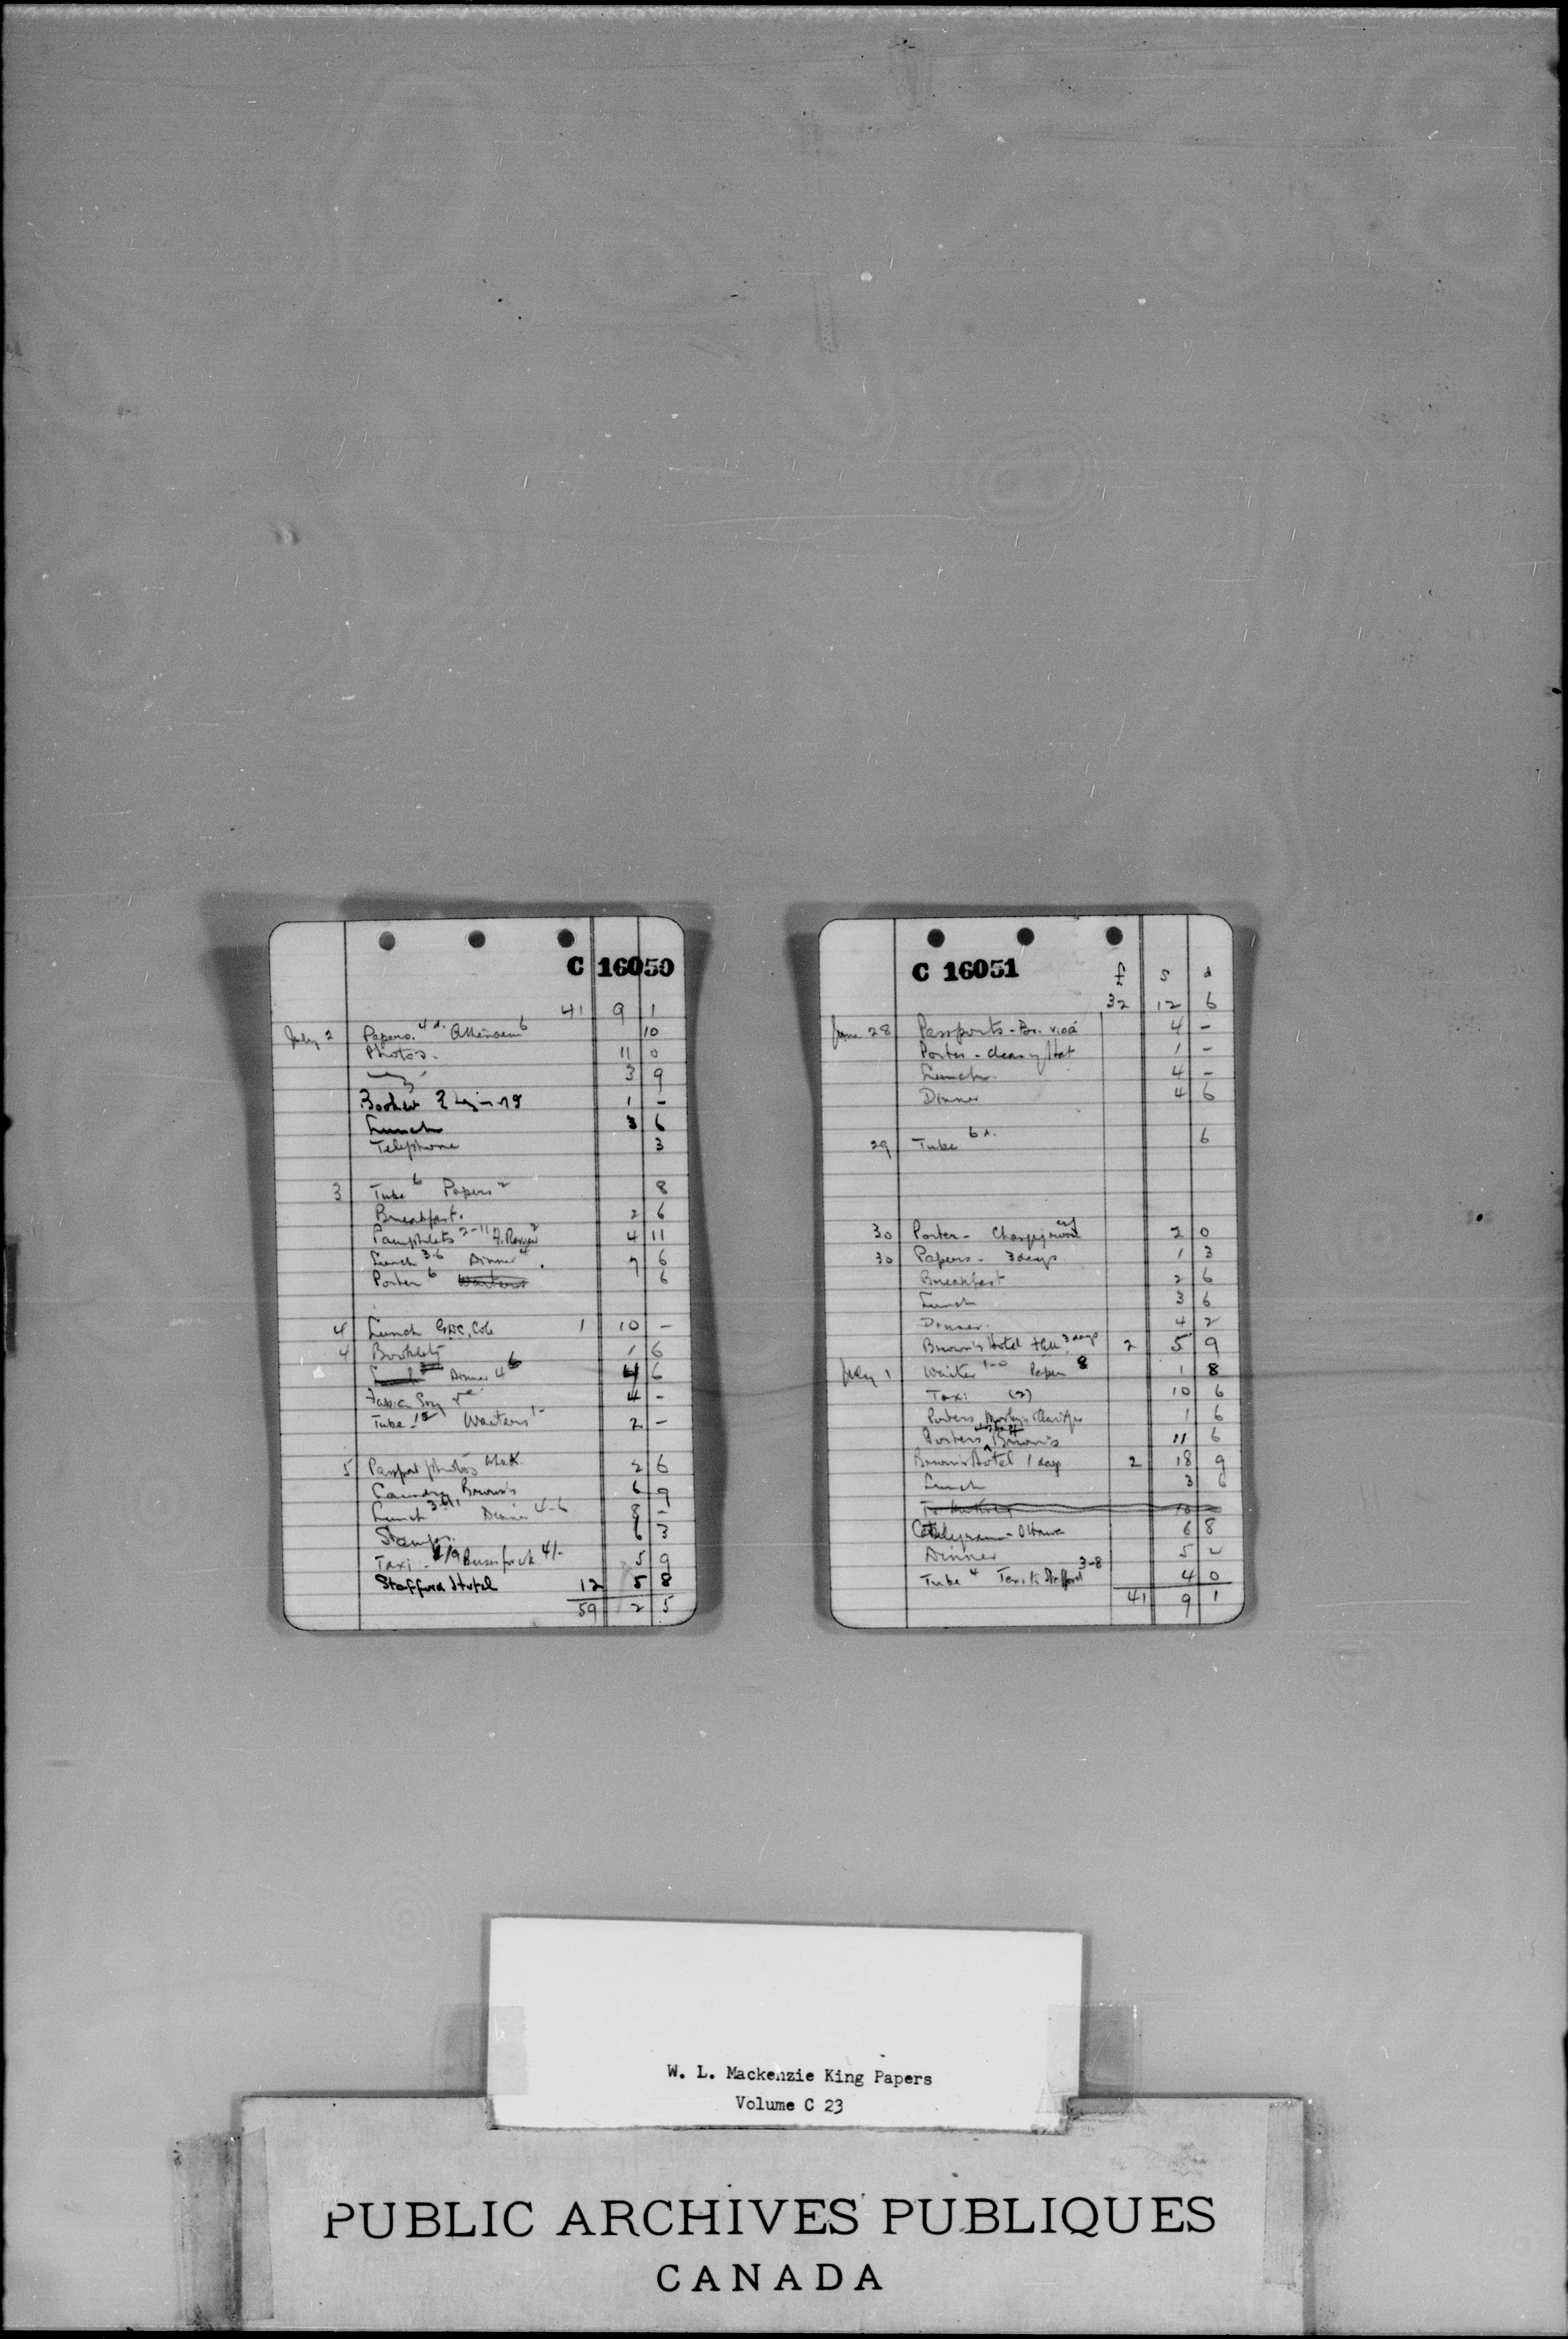 C 16050
41 9 1
July 2 Papers. 4d. Athenaeum 6 10
Photos. 11 0
3 9
1 -
Lunch 3 6
Telephone 3
3 Tube 6 Papers 2 8
Breakfast. 2 6
Pamphlets 2-11 4 11
Lunch 3-6 Dinner 4. 7 6
Porter 6 Waiters 6
4 Lunch GDC, Cole 1 10 -
4 Booklets 1 6
Lunch Dinner 4 6 4 6
Fabian 4 -
Tube - 1s Waiters 1- 2 -
5 Passport photos 2 6
Laundry Brown's 6 9
Lunch 3-6 Dinner 4-6 8 -
Stamps. 6 3
Taxi - 1/9 4/- 5 9
Stafford Hotel 12 5 8
59 2 5
C 16051 £ s d
32 12 6
June 28 Passports - Br. visa 4 -
Porter - 1 -
Lunch 4 -
Dinner 4 6
29 Tube 6d. 6
30 Porter - 2 0
30 Papers - 3 days 1 3
Breakfast 2 6
Lunch 3 6
Dinner. 4 2
Brown's Hotel 3 days 2 5 9
July 1 Waiter 1-0 Paper 8 1 8
Taxi (2) 10 6
Porters 1 6
Porters Brown's 11 6
Brown's Hotel 1 day 2 18 9
Lunch 3 6
10 -
Cablegram - Ottawa 6 8
Dinner 5 2
Tube 4 Taxi to Stafford 3-8 4 0
41 9 1
W. L. Mackenzie King Papers
Volume C 23
PUBLIC ARCHIVES PUBLIQUES
CANADA